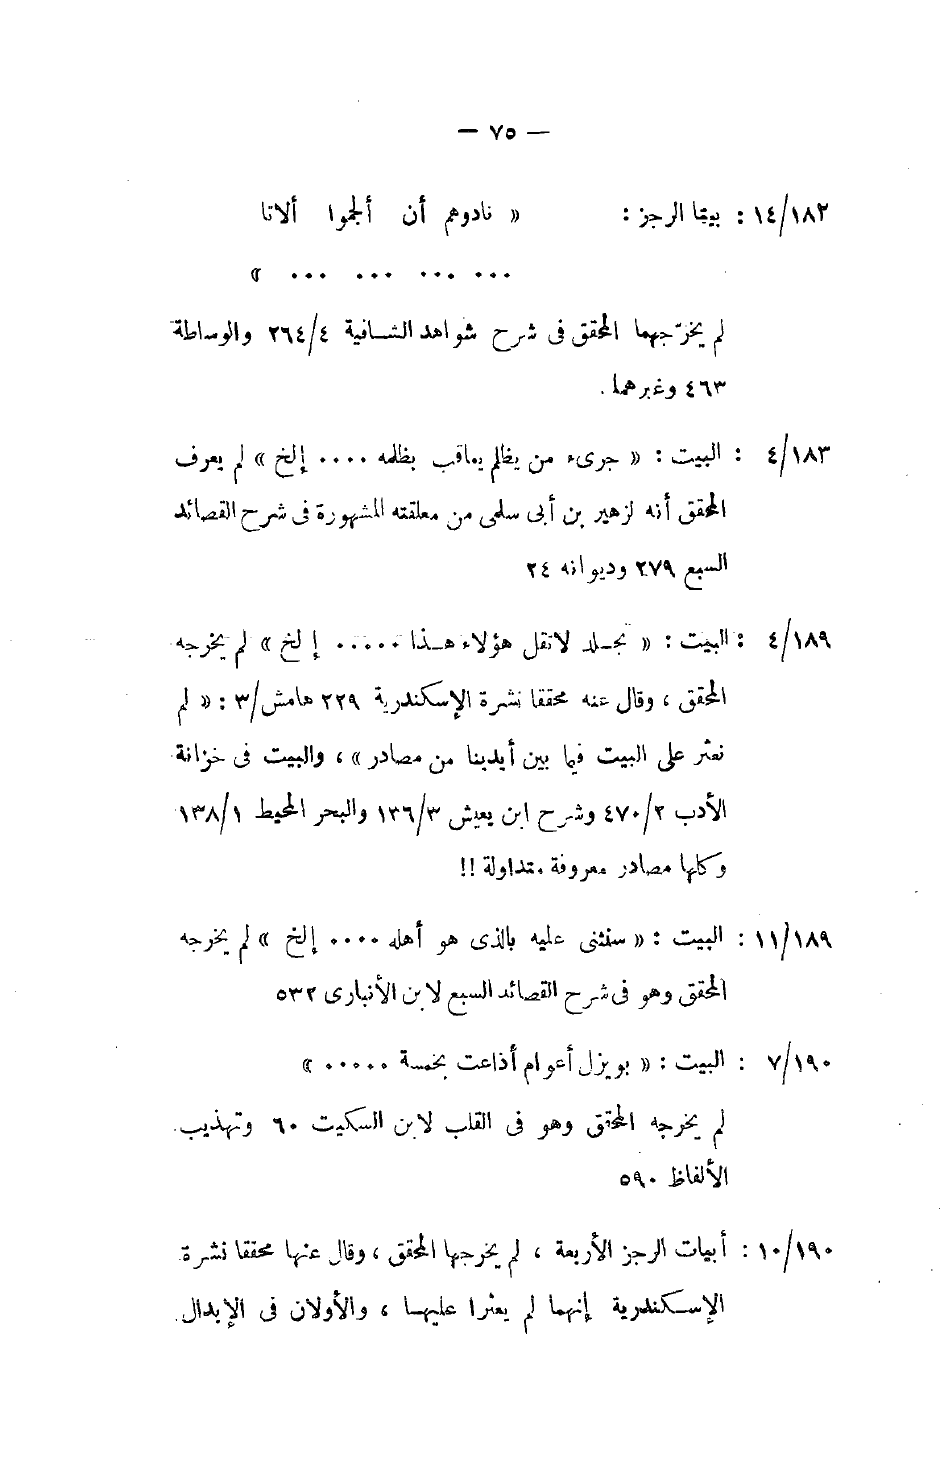 — ٧٥ —
١٤/١٨٢ : بيتا الرجز : « نادوهم أن ألجموا ألاتا
... ... ... ... »
لم يخرّجهما المحقق فى شرح شواهد الشافية ٢٦٤/٤ والوساطة
٤٦٣ وغيرهما .
٤/١٨٣ : البيت : « جرىء من يظلم يعاقب بظلمه .... إلخ » لم يعرف
المحقق أنه لزهير بن أبى سلمى من معلقته المشهورة فى شرح القصائد
السبع ٢٧٩ وديوانه ٢٤
٤/١٨٩ : البيت : « تجلد لا تقل هؤلاء هذا ..... إلخ » لم يخرجه
المحقق ، وقال عنه محققا نشرة الإسكندرية ٢٢٩ هامش/٣ : « لم
نعثر على البيت فيما بين أيدينا من مصادر » ، والبيت فى خزانة
الأدب ٤٧٠/٢ وشرح ابن يعيش ١٣٦/٣ والبحر المحيط ١٣٨/١
وكلها مصادر معروفة متداولة !!
١١/١٨٩ : البيت : « سنثنى عليه بالذى هو أهله .... إلخ » لم يخرجه
المحقق وهو فى شرح القصائد السبع لابن الأنبارى ٥٣٢
٧/١٩٠ : البيت : « بويزل أعوام أذاعت بخمسة ..... »
لم يخرجه المحقق وهو فى القلب لابن السكيت ٦٠ وتهذيب
الألفاظ ٥٩٠
١٠/١٩٠ : أبيات الرجز الأربعة ، لم يخرجها المحقق ، وقال عنها محققا نشرة
الإسكندرية إنهما لم يعثرا عليها ، والأولان فى الإبدال